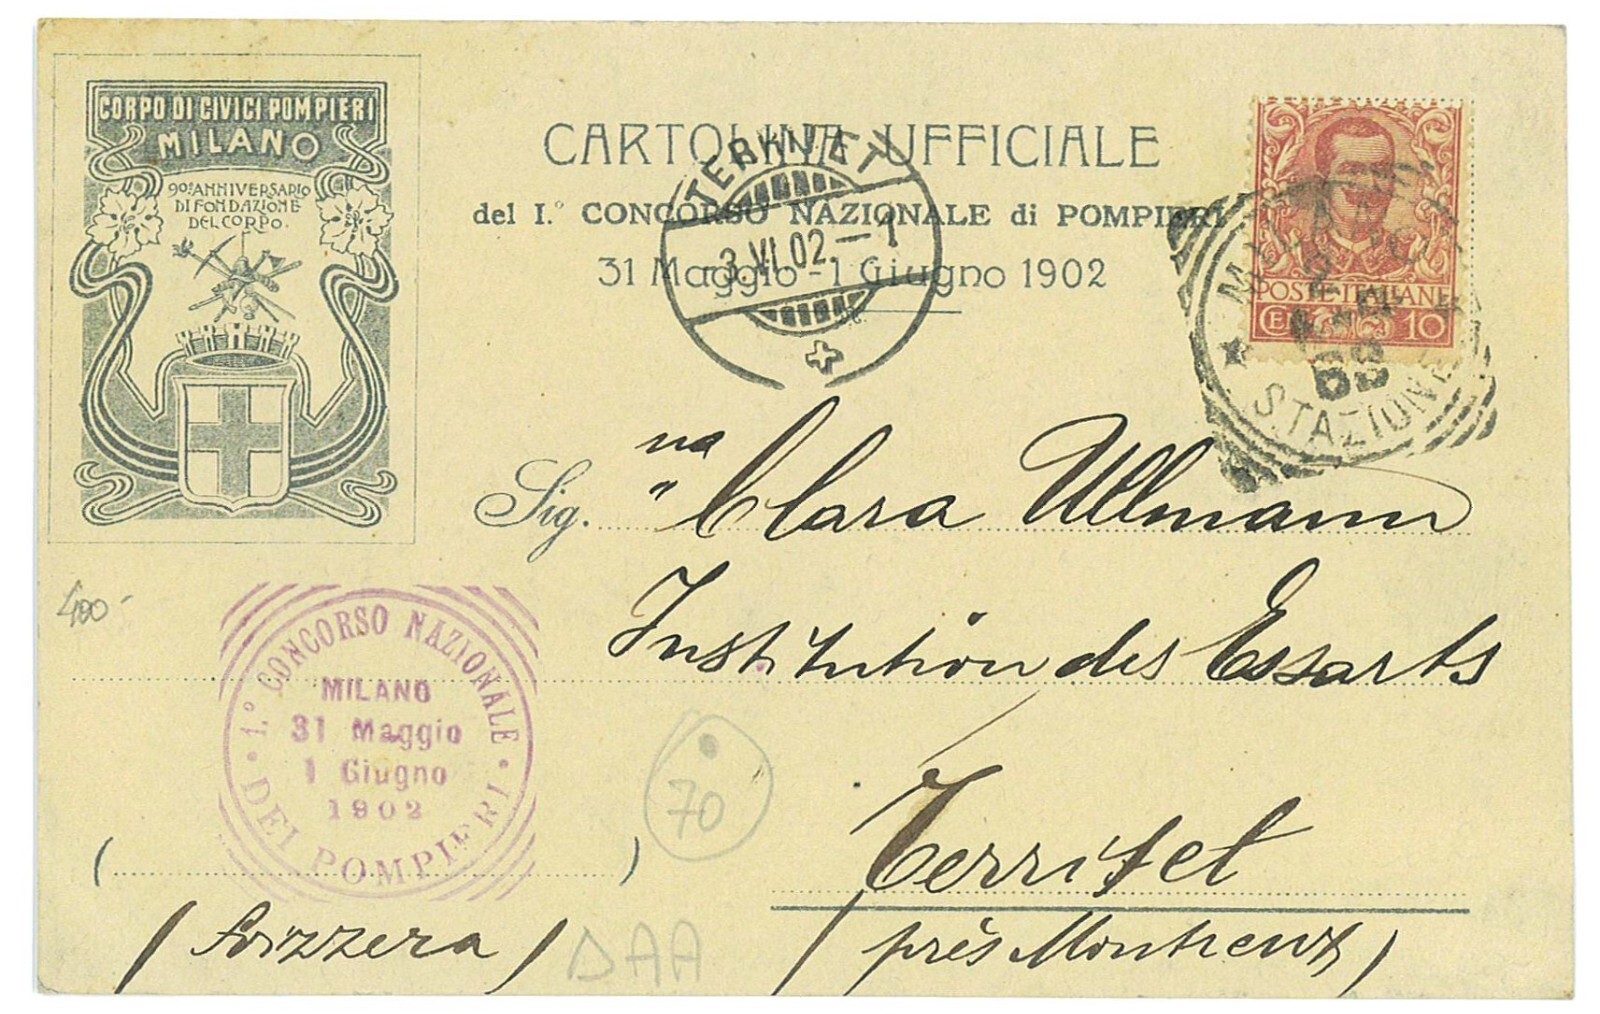 CORPO DI CIVICI POMPIERI
MILANO
90° ANNIVERSARIO
DI FONDAZIONE
DEL CORPO.
CARTOLINA UFFICIALE
del I.° CONCORSO NAZIONALE di POMPIERI
31 Maggio - 1 Giugno 1902
TERRITET
3.VI.02.-1
POSTE ITALIANE
CE 10
MILANO
68
STAZIONE
Sig.na " Clara Ullmann
Institution des Essarts
Territet
(près Montreux)
(Svizzera)
400-
1.° CONCORSO NAZIONALE
MILANO
31 Maggio
1 Giugno
1902
DEI POMPIERI
70
DAA